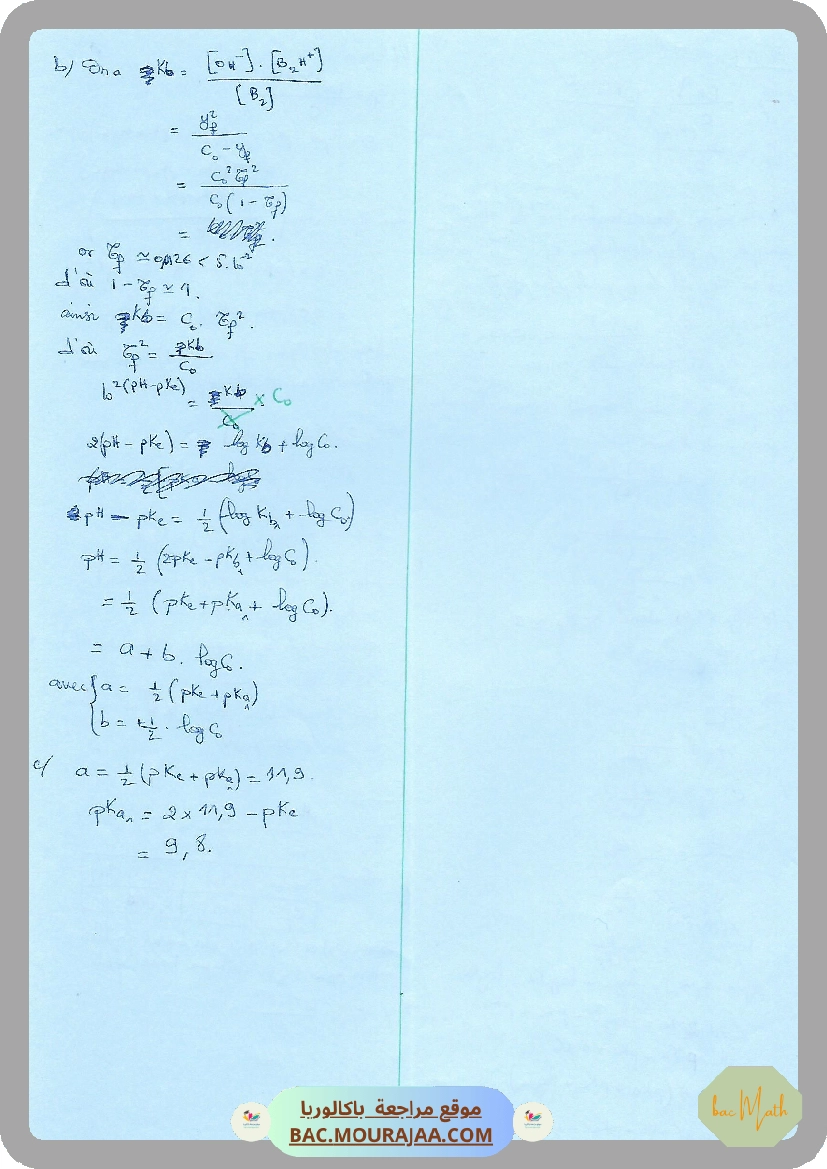 b/ On a Kb = [OH⁻] . [B₂H⁺] / [B₂]
= y_f² / C₀ - y_f
= C₀² τ_f² / C₀(1 - τ_f)
=
or τ_f ≃ 0,0126 < 5.10⁻²
d'où 1 - τ_f ≃ 1.
ainsi Kb = C₀ . τ_f².
d'où τ_f² = Kb / C₀
10^2(pH-pKe) = Kb / C₀ × C₀
2(pH - pKe) = log Kb + log C₀.
pH - pKe = 1/2 (log Kb₁ + log C₀)
pH = 1/2 (2pKe - pKb₁ + log C₀).
= 1/2 (pKe + pKa₁ + log C₀).
= a + b. log C₀.
avec { a = 1/2 (pKe + pKa₁)
b = +1/2 . log C₀
c/ a = 1/2 (pKe + pKa₁) = 11,9.
pKa₁ = 2 × 11,9 - pKe
= 9,8.
موقع مراجعة باكالوريا
BAC.MOURAJAA.COM
bac Math